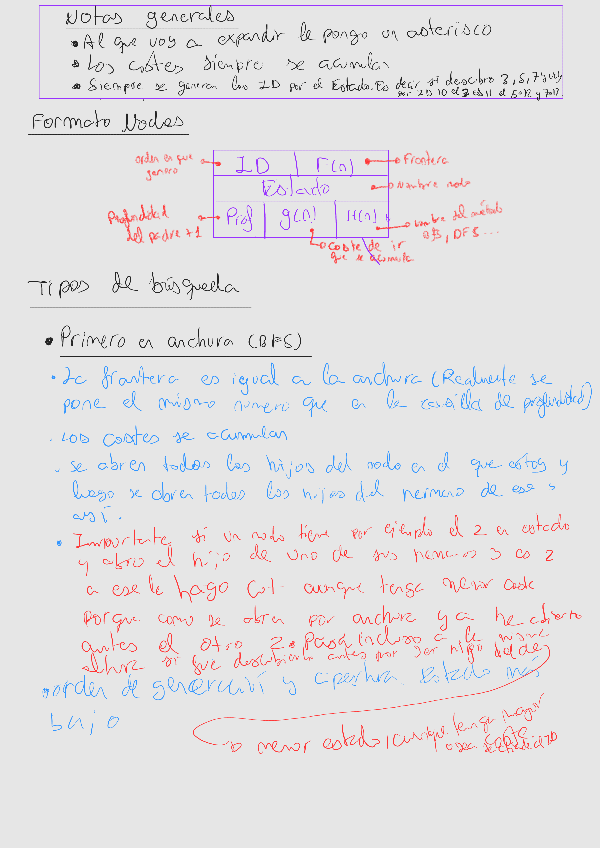 Notas generales
• Al que voy a expandir le pongo un asterisco
• Los costes siempre se acumulan
• Siempre se generan los ID por el Estado. Es decir si descubro 3, 5, 7
Formato Nodos
orden en que genero
ID
F(n)
Frontera
Estado
Nombre nodo
Profundidad del padre + 1
Prof
g(n)
H(n)
nombre del método
DFS...
coste de ir que se acumula
Tipos de búsqueda
• Primero en anchura (BFS)
• La frontera es igual a la anchura (Realmente se
pone el mismo numero que en la casilla de profundidad)
• Los costes se acumulan
• se abren todos los hijos del nodo en el que estoy y
luego se abren todos los hijos del hermano de ese y
así.
• Importante, si un nodo tiene por ejemplo el 2 en estado
y abro el hijo de uno de sus hermanos y es 2
a ese le hago cut aunque tenga menor coste
porque como se abren por anchura ya he abierto
antes el otro 2. Pasa incluso a la misma
altura si fue descubierto antes por ser hijo del de
• orden de generación y apertura. Estado más
bajo
menor estado, aunque tenga mayor
coste